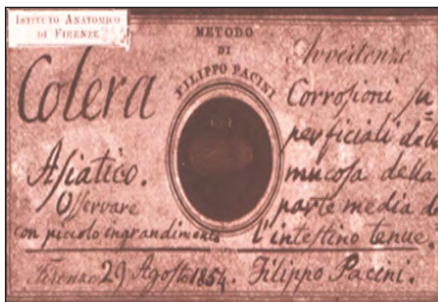 ISTITUTO ANATOMICO
DI FIRENZE
METODO
DI
FILIPPO PACINI
Colera
Asiatico.
Osservare
con piccolo ingrandimento
Avvertenze
Corrosioni su
perficiali della
mucosa della
parte media del
l'intestino tenue.
Firenze 29 Agosto 1854. Filippo Pacini.